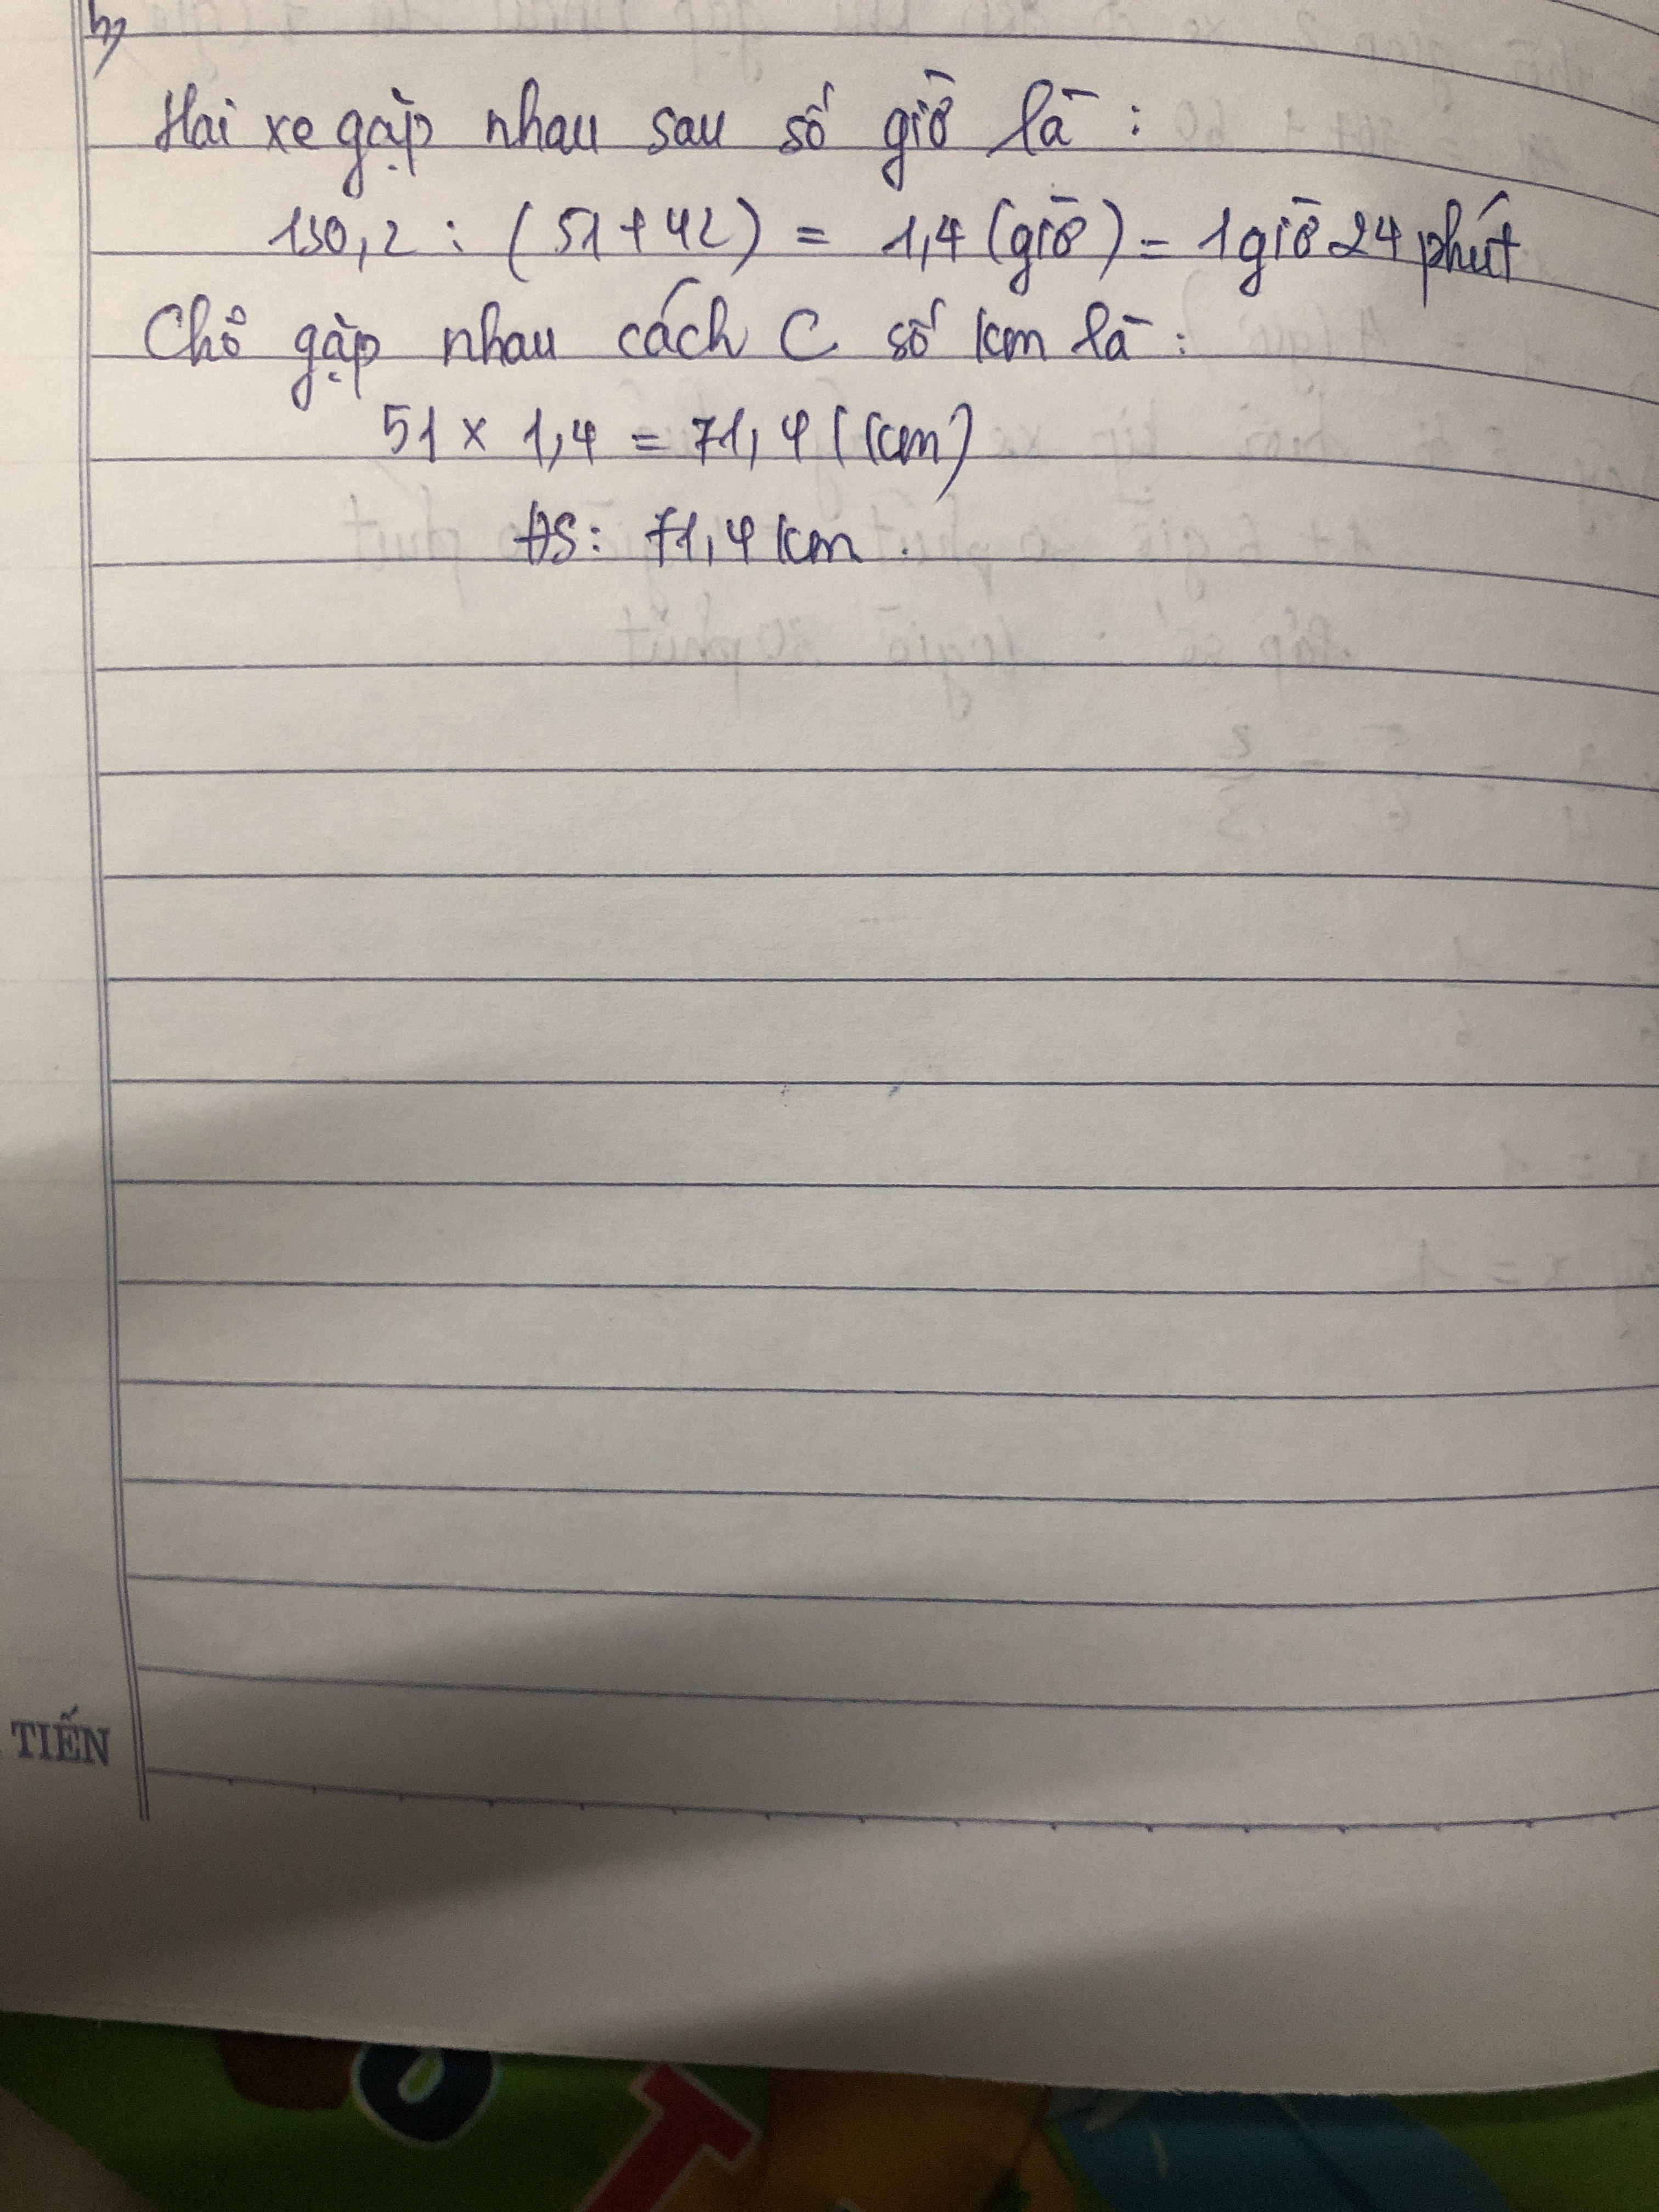 b)
Hai xe gặp nhau sau số giờ là :
130,2 : (51+42) = 1,4 (giờ) = 1 giờ 24 phút
Chỗ gặp nhau cách C số km là :
51 x 1,4 = 71,4 (km)
ĐS: 71,4 km .
TIẾN